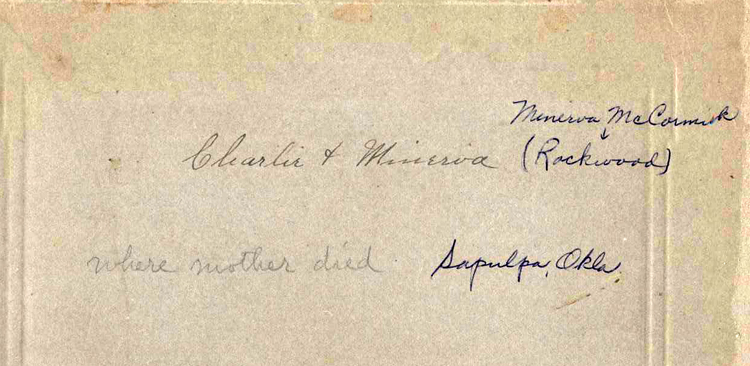 Minerva McCormick
Charlie & Minerva (Rockwood)
where mother died Sapulpa, Okla.